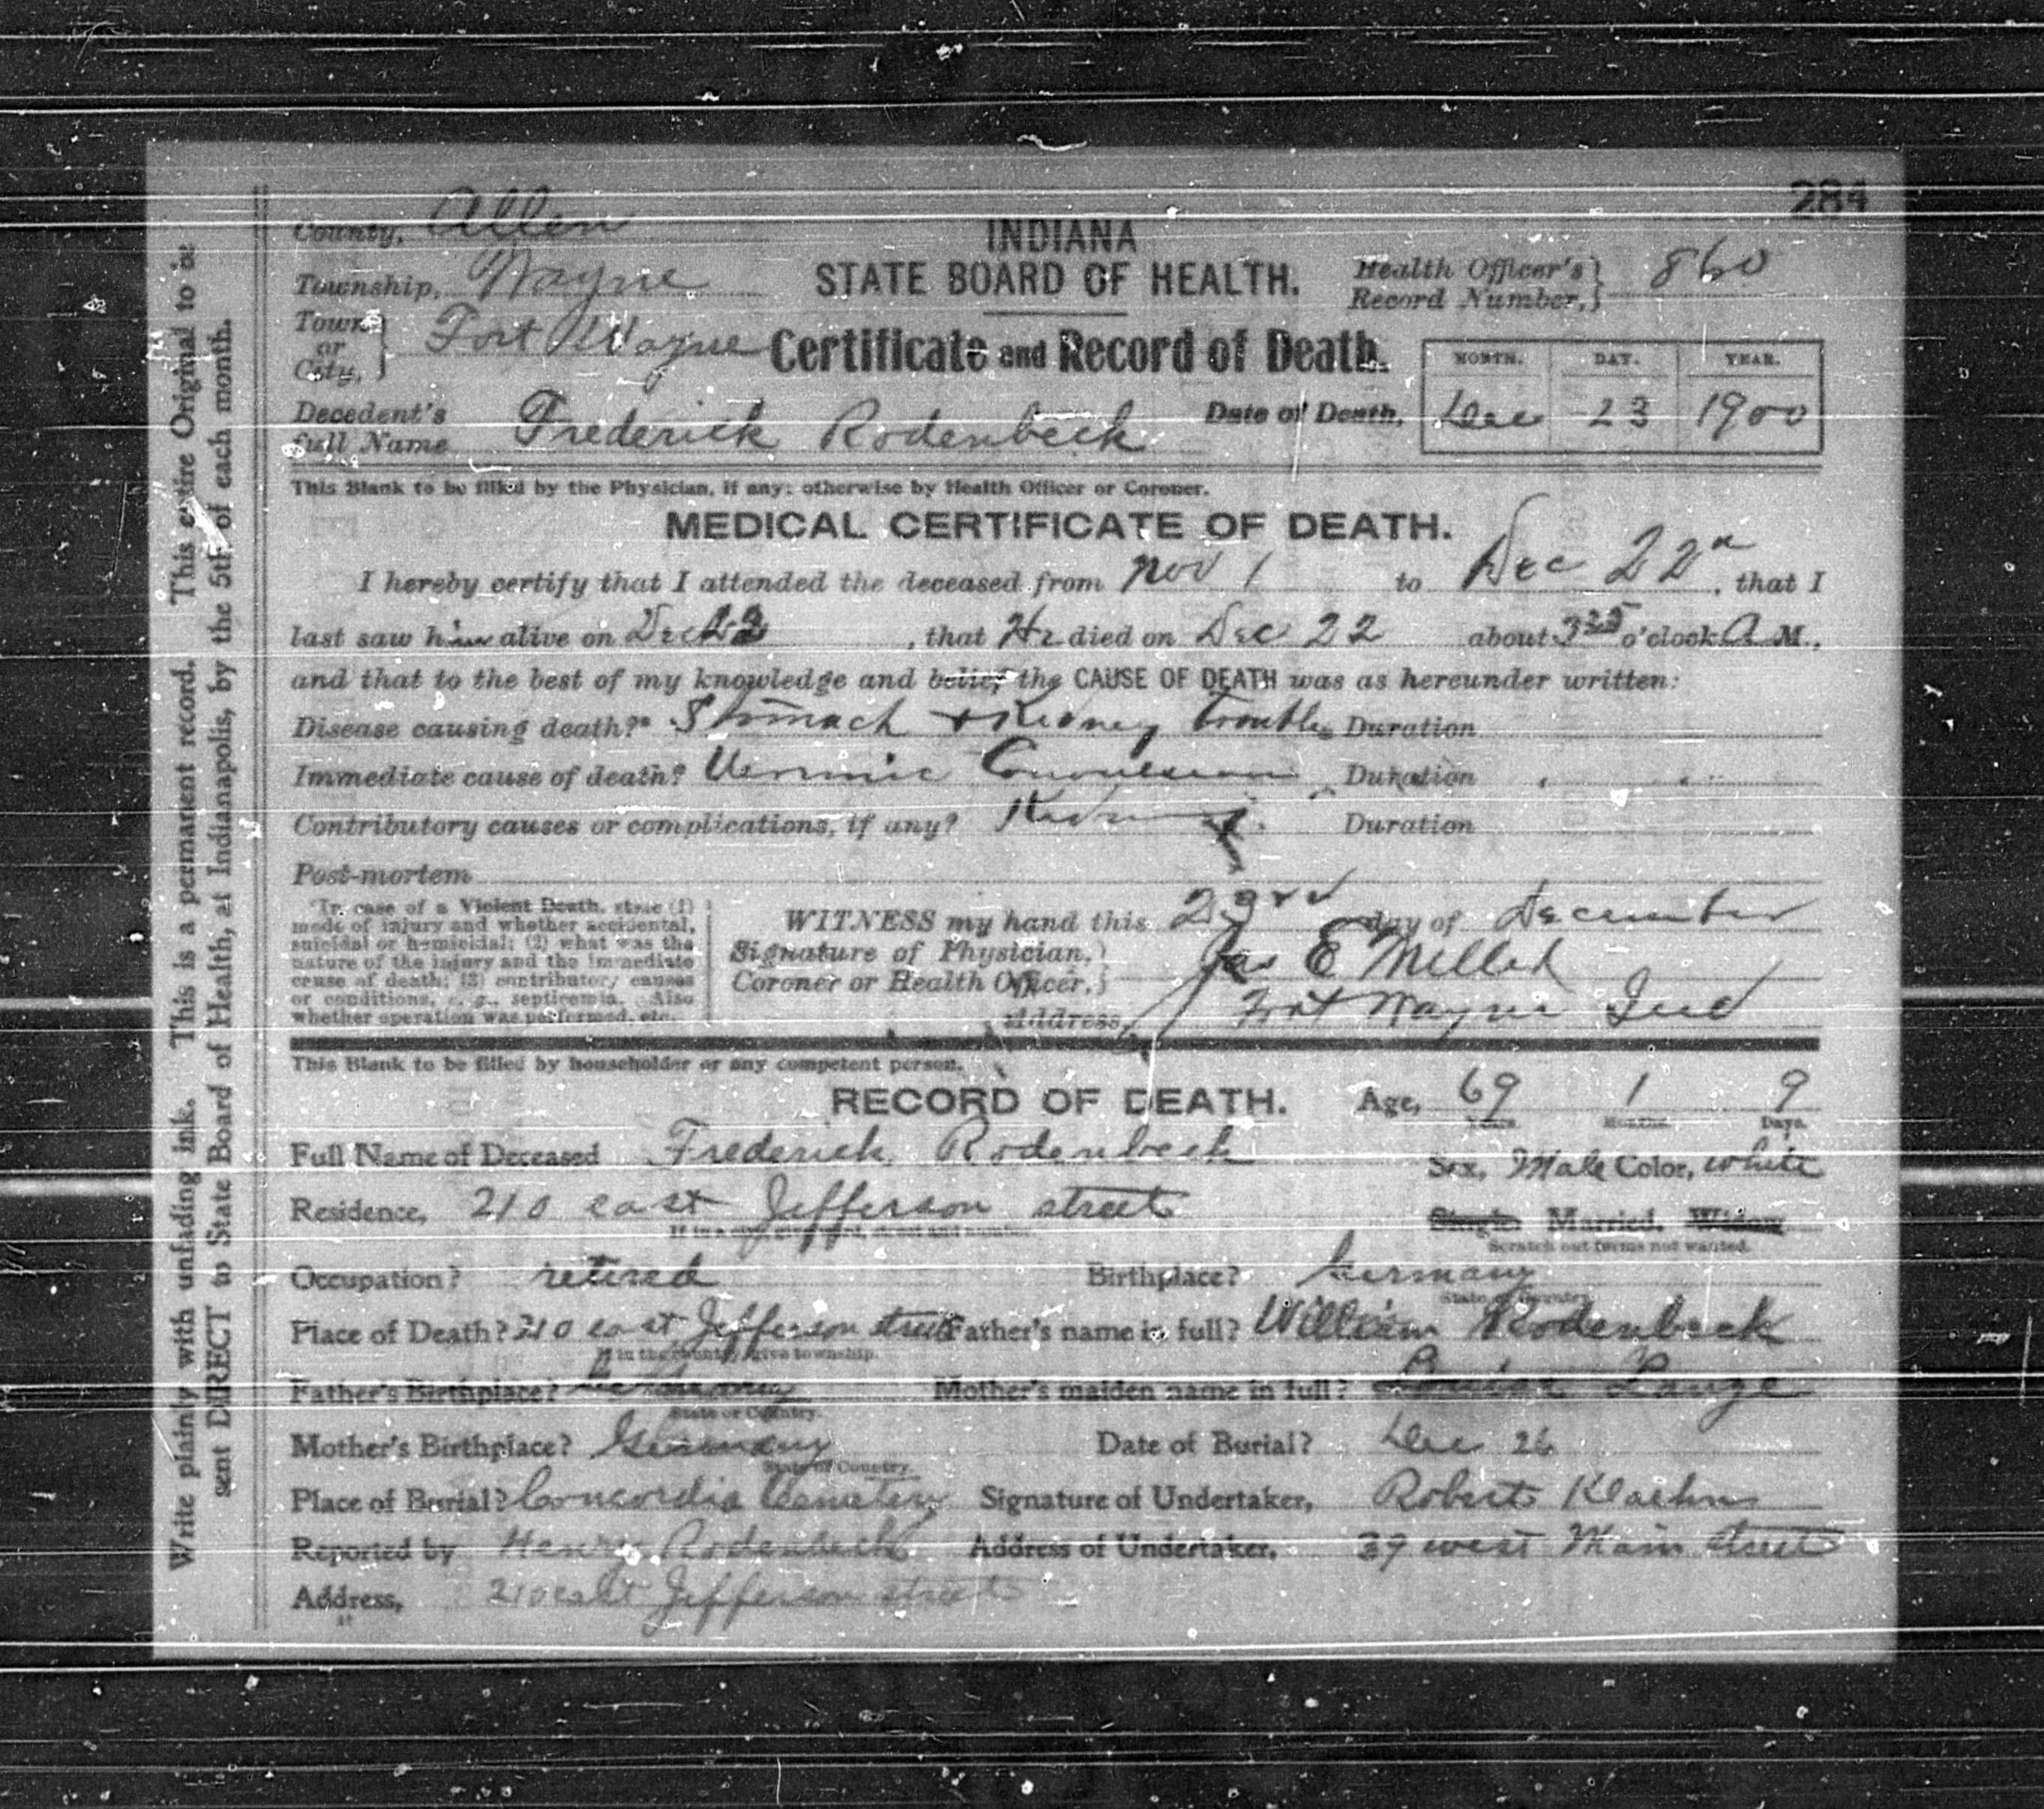 284
County, Allen
INDIANA
Township, Wayne
STATE BOARD OF HEALTH.
Health Officer's Record Number, 860
Town or City, Fort Wayne
Certificate and Record of Death.
MONTH. DAY. YEAR.
Decedent's full Name Frederick Rodenbeck
Date of Death, Dec 23 1900
This Blank to be filled by the Physician, if any; otherwise by Health Officer or Coroner.
MEDICAL CERTIFICATE OF DEATH.
I hereby certify that I attended the deceased from Nov 1 to Dec 22, that I
last saw him alive on Dec, that He died on Dec 22 about 3 25 o'clock A M.,
and that to the best of my knowledge and belief the CAUSE OF DEATH was as hereunder written:
Disease causing death?* Stomach + Kidney Trouble Duration
Immediate cause of death? Duration
Contributory causes or complications, if any? Duration
Post-mortem
*In case of a Violent Death, state (1)
mode of injury and whether accidental,
suicidal or homicidal; (2) what was the
nature of the injury and the immediate
cause of death; (3) contributory causes
or conditions, e. g., septicemia. Also
whether operation was performed, etc.
WITNESS my hand this 23rd day of December
Signature of Physician, Coroner or Health Officer, Jas E Miller
Address, Fort Wayne Ind
This Blank to be filled by householder or any competent person.
RECORD OF DEATH.
Age, 69 Years. 1 Months. 9 Days.
Full Name of Deceased Frederick Rodenbeck
Sex, Male Color, white
Residence, 210 east Jefferson street
Single. Married. Widow
Scratch out terms not wanted.
Occupation? retired
Birthplace? Germany
State or Country.
Place of Death? 210 east Jefferson street
If in the country, give township.
Father's name in full? William Rodenbeck
Father's Birthplace? Germany
State or Country.
Mother's maiden name in full? Louisa Lange
Mother's Birthplace? Germany
State or Country.
Date of Burial? Dec 26
Place of Burial? Concordia Cemetery
Signature of Undertaker, Robert Klaehn
Reported by Henry Rodenbeck
Address of Undertaker, 39 west Main street
Address, 210 east Jefferson street
Write plainly with unfading ink. This is a permanent record. This entire Original to be
sent DIRECT to State Board of Health, at Indianapolis, by the 5th of each month.